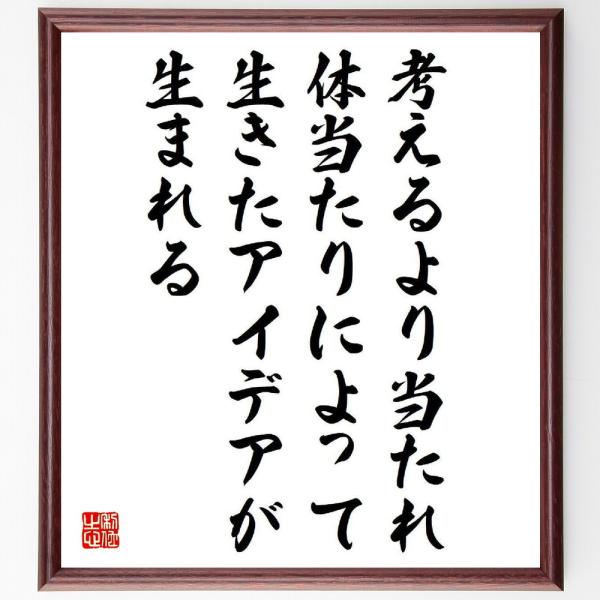 考えるより当たれ
体当たりによって
生きたアイデアが
生まれる